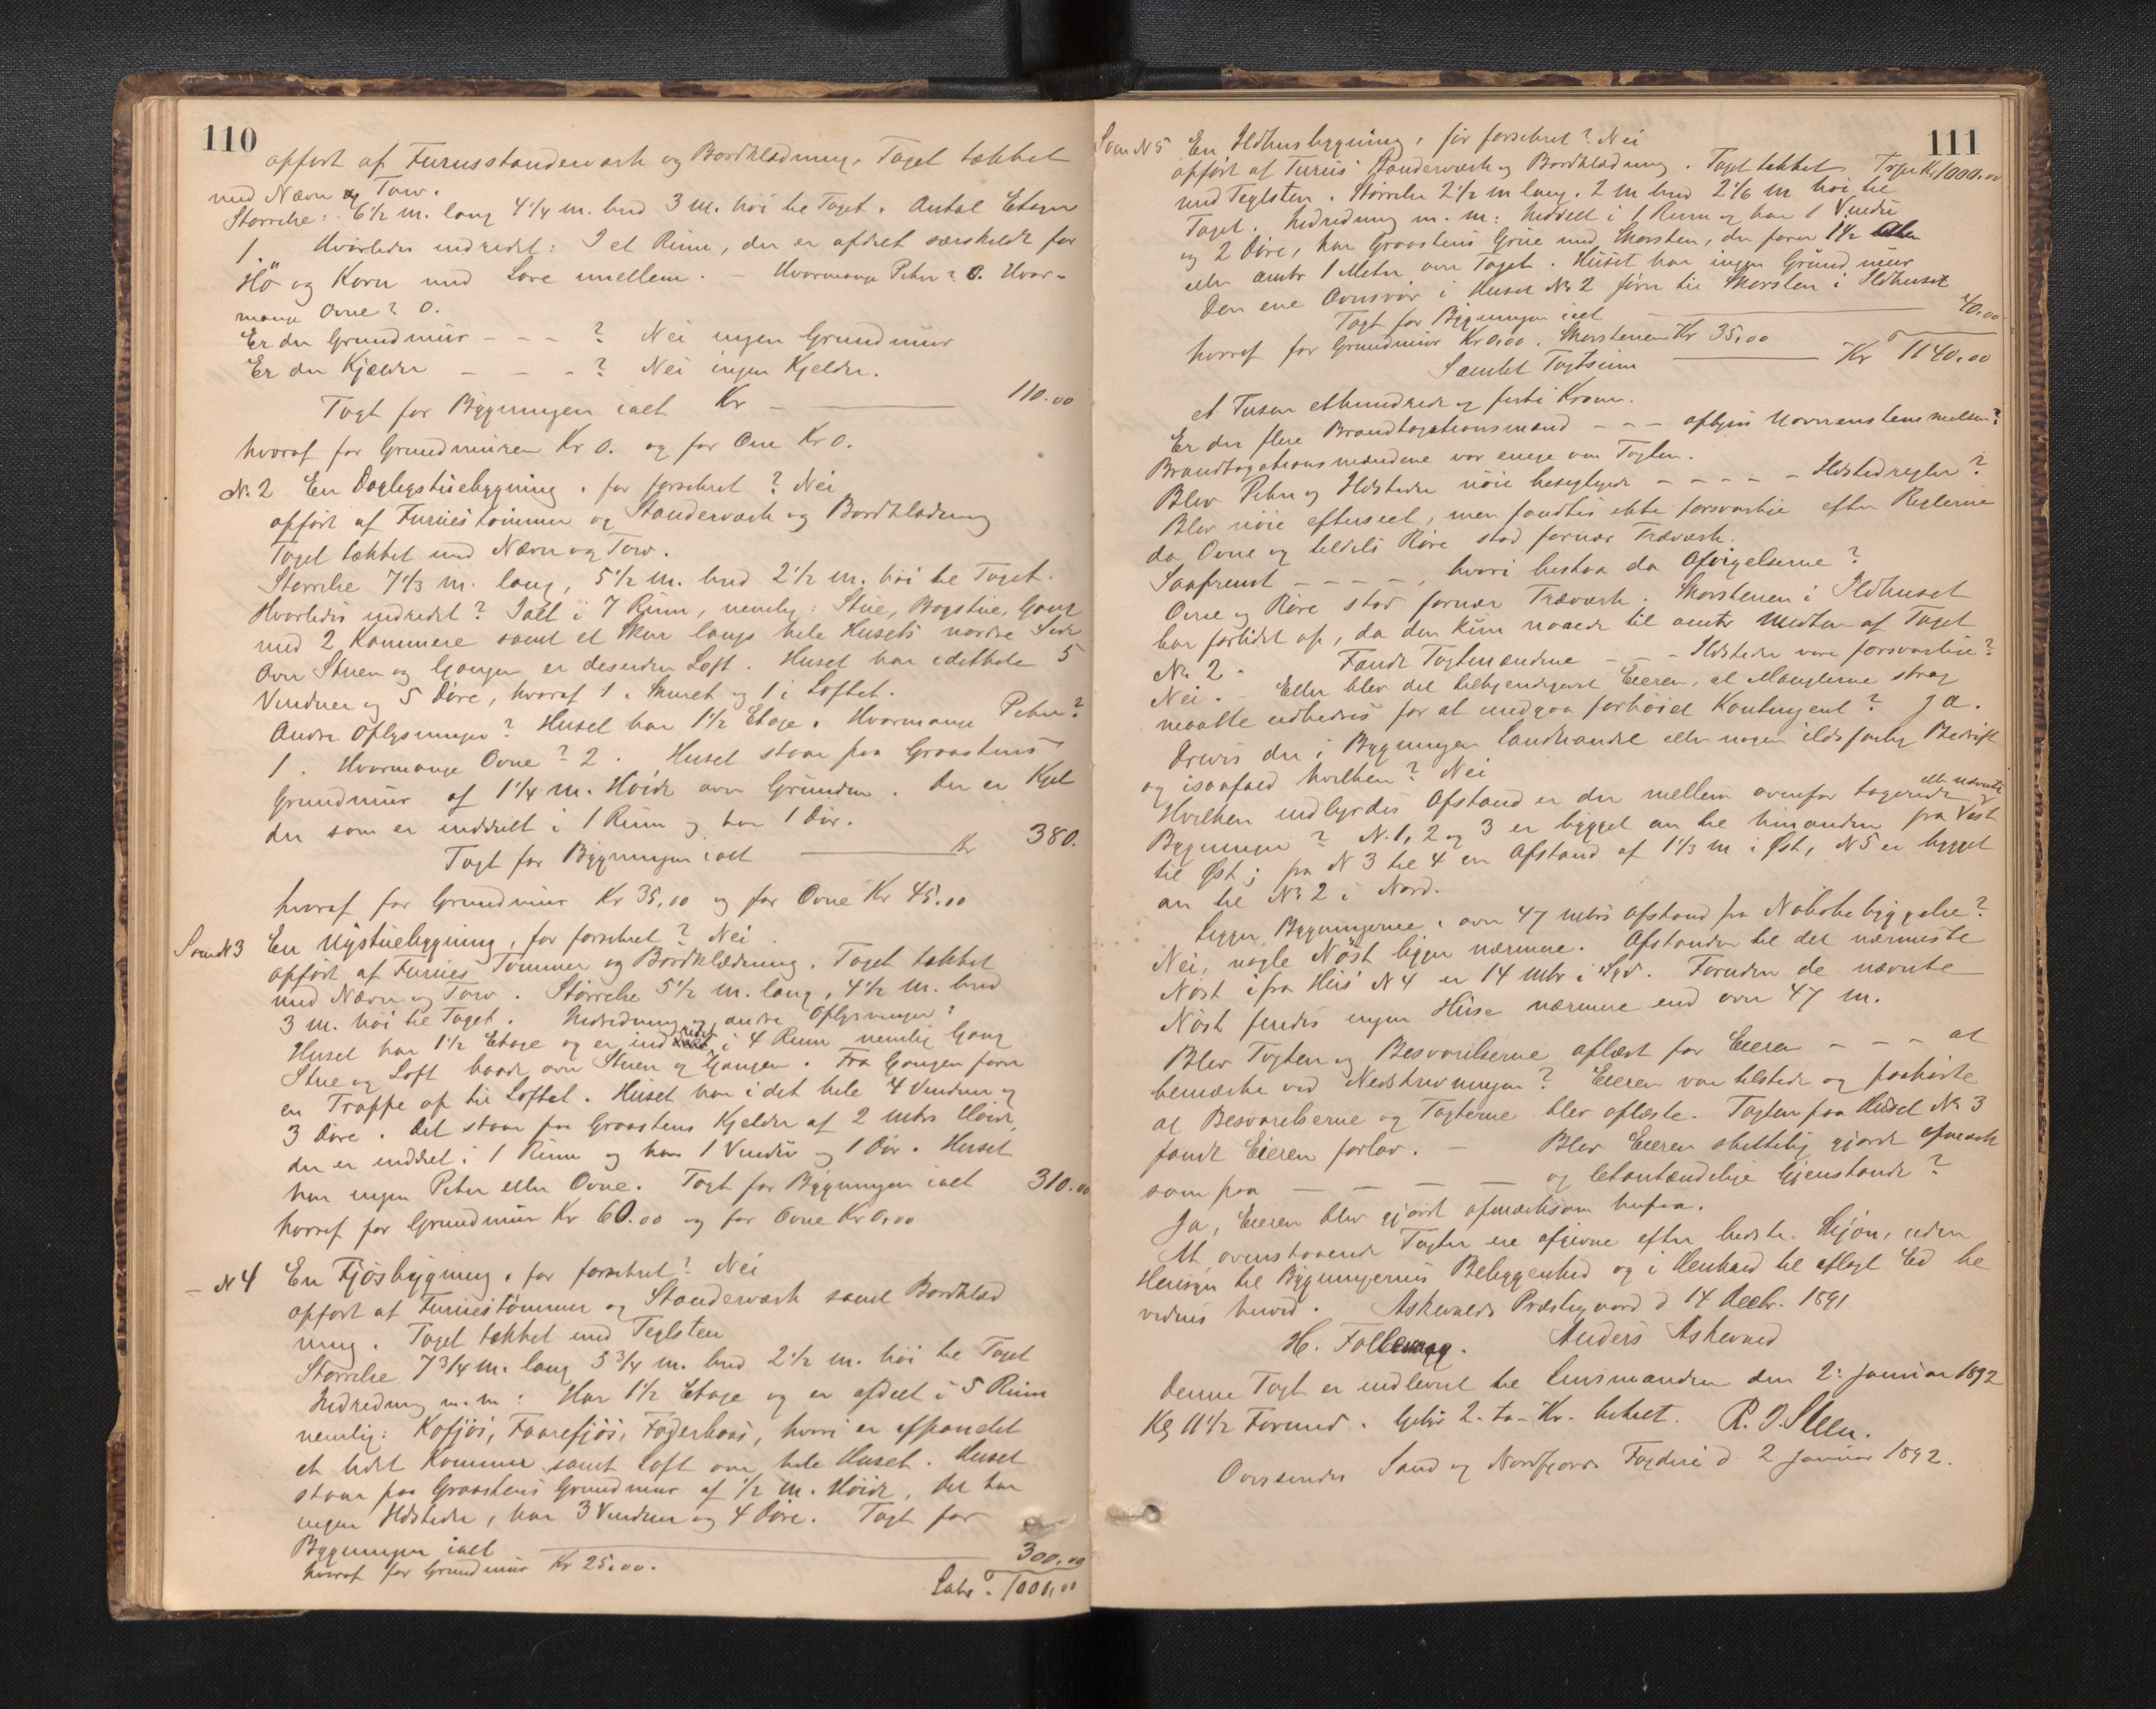 110
opført af Furusstanderværk og Bordklædning, Taget tækket
med Næver og Torv.
Størrelse: 6½ m. lang 4¼ m. bred 3 m. höi til Taget. Antal Etager
1. Hvorledes indredet: I et Rum, der er afdelt særskildt for
Hö og Korn med Love imellem. – Hvormange Peber? 0. Hvor-
mange Ovne? 0.
Er der Grundmür - - - ? Nei ingen Grundmür
Er der Kjælder - - - ? Nei ingen Kjelder.
Taxt for Bygningen ialt Kr — 110.00
hvoraf for Grundmüren Kr 0. og for Ovne Kr 0.
N. 2 En Daglystuebygning, før forsikret? Nei
opført af Furuestømmer og Standerværk og Bordklædning
Taget tækket med Næver og Torv.
Størrelse 7⅓ m. lang, 5½ m. bred 2½ m. höi til Taget.
Hvorledes indredet? Ialt i 7 Rum, nemlig: Stue, Bagstue, Gang
med 2 Kammere samt et Skur langs hele Husets nordre Side
Over Stuen og Gangen er desuden Loft. Huset har idethele 5
Vinduer og 5 Döre, hvoraf 1 i Skuret og 1 i Loftet.
Andre Oplysninger? Huset har 1½ Etage. Hvormange Peber?
1. Hvormange Ovne? 2. Huset staar paa Graastens
Grundmür af 1¼ m. Höide over Grunden. Der er Kjel
der som er inddelt i 1 Rum og har 1 Dör.
Taxt for Bygningen ialt — Kr 380.
hvoraf for Grundmür Kr 35,00 og for Ovne Kr 45.00
Som N 3 En Nystuebygning, før forsikret? Nei
opført af Furues Tømmer og Bordklædning. Taget tækket
med Næver og Torv. Størrelse 5½ m. lang, 4½ m. bred
3 m. höi til Taget. Indredning og andre Oplysninger?
Huset har 1½ Etage og er indredet i 4 Rum nemlig Gang
Stue og Loft baade over Stuen og Gangen. Fra Gangen fører
en Trappe op til Loftet. Huset har i det hele 4 Vinduer og
3 Döre. Det staar paa Graastens Kjelder af 2 mtrs Höide,
der er inddelt i 1 Rum og har 1 Vindu og 1 Dör. Huset
har ingen Peber eller Ovne. Taxt for Bygningen ialt 310.00
hvoraf for Grundmür Kr 60.00 og for Ovne Kr 0,00
– N 4 En Fjösbygning, før forsikret? Nei
opført af Furuestømmer og Standerværk samt Bordklæd
ning. Taget tækket med Teglsten
Størrelse 7¾ m. lang 5¾ m. bred 2½ m. höi til Taget
Indredning m. m: Har 1½ Etage og er afdelt i 5 Rum
nemlig: Kofjös, Faarefjös, Foderbaas, hvori er afpandet
et lidet Kammer samt Loft over hele Huset. Huset
staar paa Graastens Grundmur af ½ m. Höide, det har
ingen Ildsteder, har 3 Vinduer og 4 Döre. Taxt for
Bygningen ialt — 300,00
hvoraf for Grundmür Kr 25.00.
Latr. 1000,00
111
Som N 5 En Ildhusbygning, før forsikret? Nei
opført af Furues Standerværk og Bordklædning. Taget tækket Trspt Kr 1000.00
med Teglsten. Størrelse 2½ m lang. 2 m bred 2⅙ m höi til
Taget. Indredning m. m: Inddelt i 1 Rum og har 1 Vindu
og 2 Döre, har Graastens Grue med Skorsten, der fører 1½ Alen
eller omtr 1 Meter over Taget. Huset har ingen Grundmür
Den ene Ovnsrör i Huset No 2 fører til Skorsten i Ildhuset
Taxt for Bygningen ialt — 40.00
hvoraf for Grundmür Kr 0,00. Skorstenen Kr 35,00
Samlet Taxtsum — Kr 1140.00
et Tusen ethundrede og firti Kroner.
Er der flere Brandtaxationsmænd - - - opgives Uoverenstemmelsen?
Brandtaxationsmændene var enige om Taxten.
Blev Peber og Ildsteder nöie besigtigede - - - - - Ildstedregler?
Blev nöie efterseet, men fandtes ikke forsvarlige efter Reglerne
da Ovne og tildels Röre stod fornær Træværk.
Saafremt - - - -, hvori bestaa da Afvigelserne?
Ovne og Röre stod fornær Træværk. Skorstenen i Ildhuset
har forlidet op, da den kun naaede til omtr Midten af Taget
No 2. Fandt Taxtmændene - - - Ildsteder være forsvarlige?
Nei. Eller blev det tilkjendegivet Eieren, at Manglerne strax
maatte udbedres for at undgaa forhöiet Kontingent? Ja.
Drives der i Bygningen Landhandel eller nogen ildsfarlig Bedrift
og isaafald hvilken? Nei
Hvilken indbyrdes Afstand er der mellem ovenfor taxerede eller nævnte
Bygninger? N. 1, 2 og 3 er bygget an til hinanden fra Vest
til Øst; fra N 3 til 4 en Afstand af 1⅓ m i Øst, N 5 er bygget
an til No 2 i Nord.
Ligger Bygningerne i over 47 mtrs Afstand fra Nabobebyggelse?
Nei, nogle Nöst ligger nærmere. Afstanden til det nærmeste
Nöst ifra Hus N 4 er 14 mtr i Syd. Foruden de nævnte
Nöst findes ingen Huse nærmere end over 47 m.
Blev Taxten og Besvarelserne oplæst for Eieren - - - at
bemærke ved Nedskrivningen? Eieren var tilstede og paahörte
at Besvarelserne og Taxterne blev oplæste. Taxten paa Huset No 3
fandt Eieren forlav. – Blev Eieren skriftelig gjort opmærk
som paa — — — — og letantændelige Gjenstande?
Ja, Eieren blev gjort opmærksom herpaa.
At ovenstaaende Taxter ere afgivne efter bedste Skjön, uden
Hensyn til Bygningernes Beliggenhed og i Henhold til aflagt Ed be
vidnes herved. Askevolds Præstegaard d 14 Decbr. 1891
H. Follevaag. Anders Askevold
Denne Taxt er indleveret til Lensmanden den 2: Januar 1892
Kl 11½ Formd. Gebyr 2 - to - Kr. betalt. R. J. Steen.
Oversendes Sønd og Nordfjords Fogderi d 2 Januar 1892.